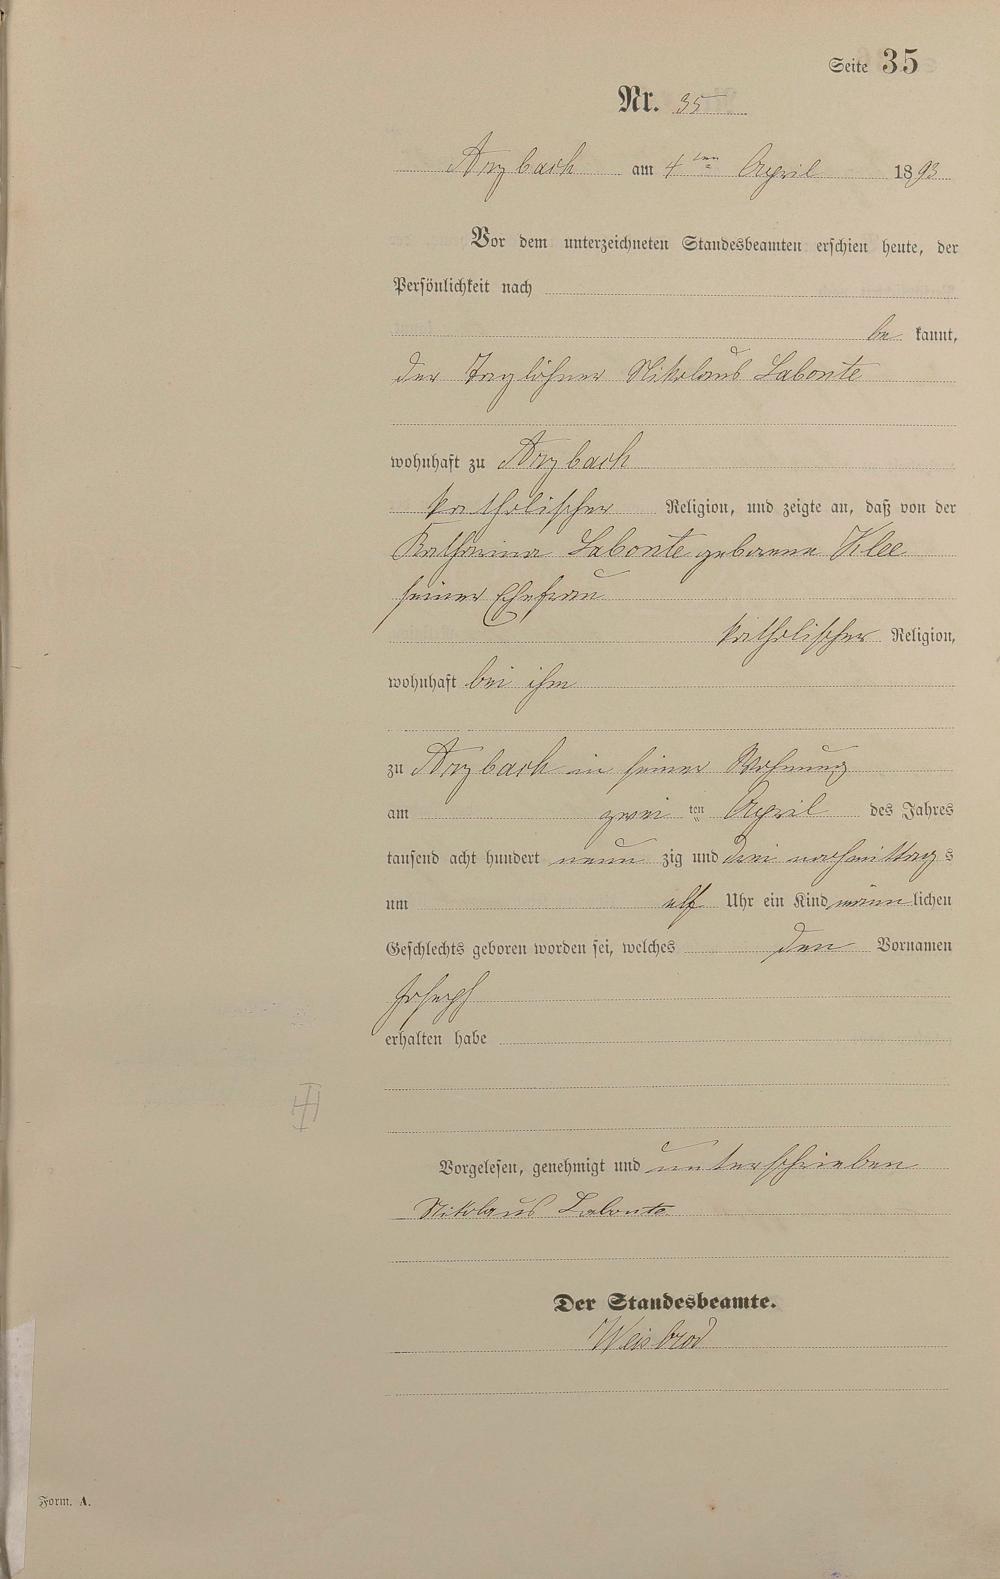 Seite 35
Nr. 35
Arzbach am 4ten April 1893
Vor dem unterzeichneten Standesbeamten erschien heute, der
Persönlichkeit nach
be kannt,
der Taglöhner Nikolaus Labonte
wohnhaft zu Arzbach
katholischer Religion, und zeigte an, daß von der
Katharina Labonte geborene Klee
seiner Ehefrau
katholischer Religion,
wohnhaft bei ihm
zu Arzbach in seiner Wohnung
am zwei ten April des Jahres
tausend acht hundert neun zig und drei nachmittags
um elf Uhr ein Kind männ lichen
Geschlechts geboren worden sei, welches den Vornamen
Joseph
erhalten habe
Vorgelesen, genehmigt und unterschrieben
Nikolaus Labonte
Der Standesbeamte.
Weisbrod
Form. A.